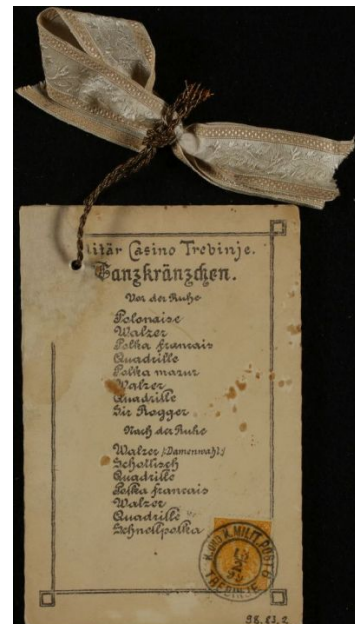 Militär Casino Trebinje.
Tanzkränzchen.
Vor der Ruhe
Polonaise
Walzer
Polka francais
Quadrille
Polka mazur
Walzer
Quadrille
Sir Rogger
Nach der Ruhe
Walzer (:Damenwahl:)
Schottisch
Quadrille
Polka francais
Walzer
Quadrille
Schnellpolka
K. UND K. MILIT. POST 6
TREBINJE
98.83.2